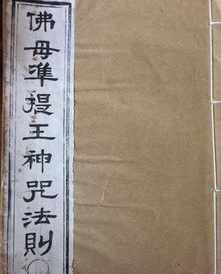 佛母準提王神咒法則